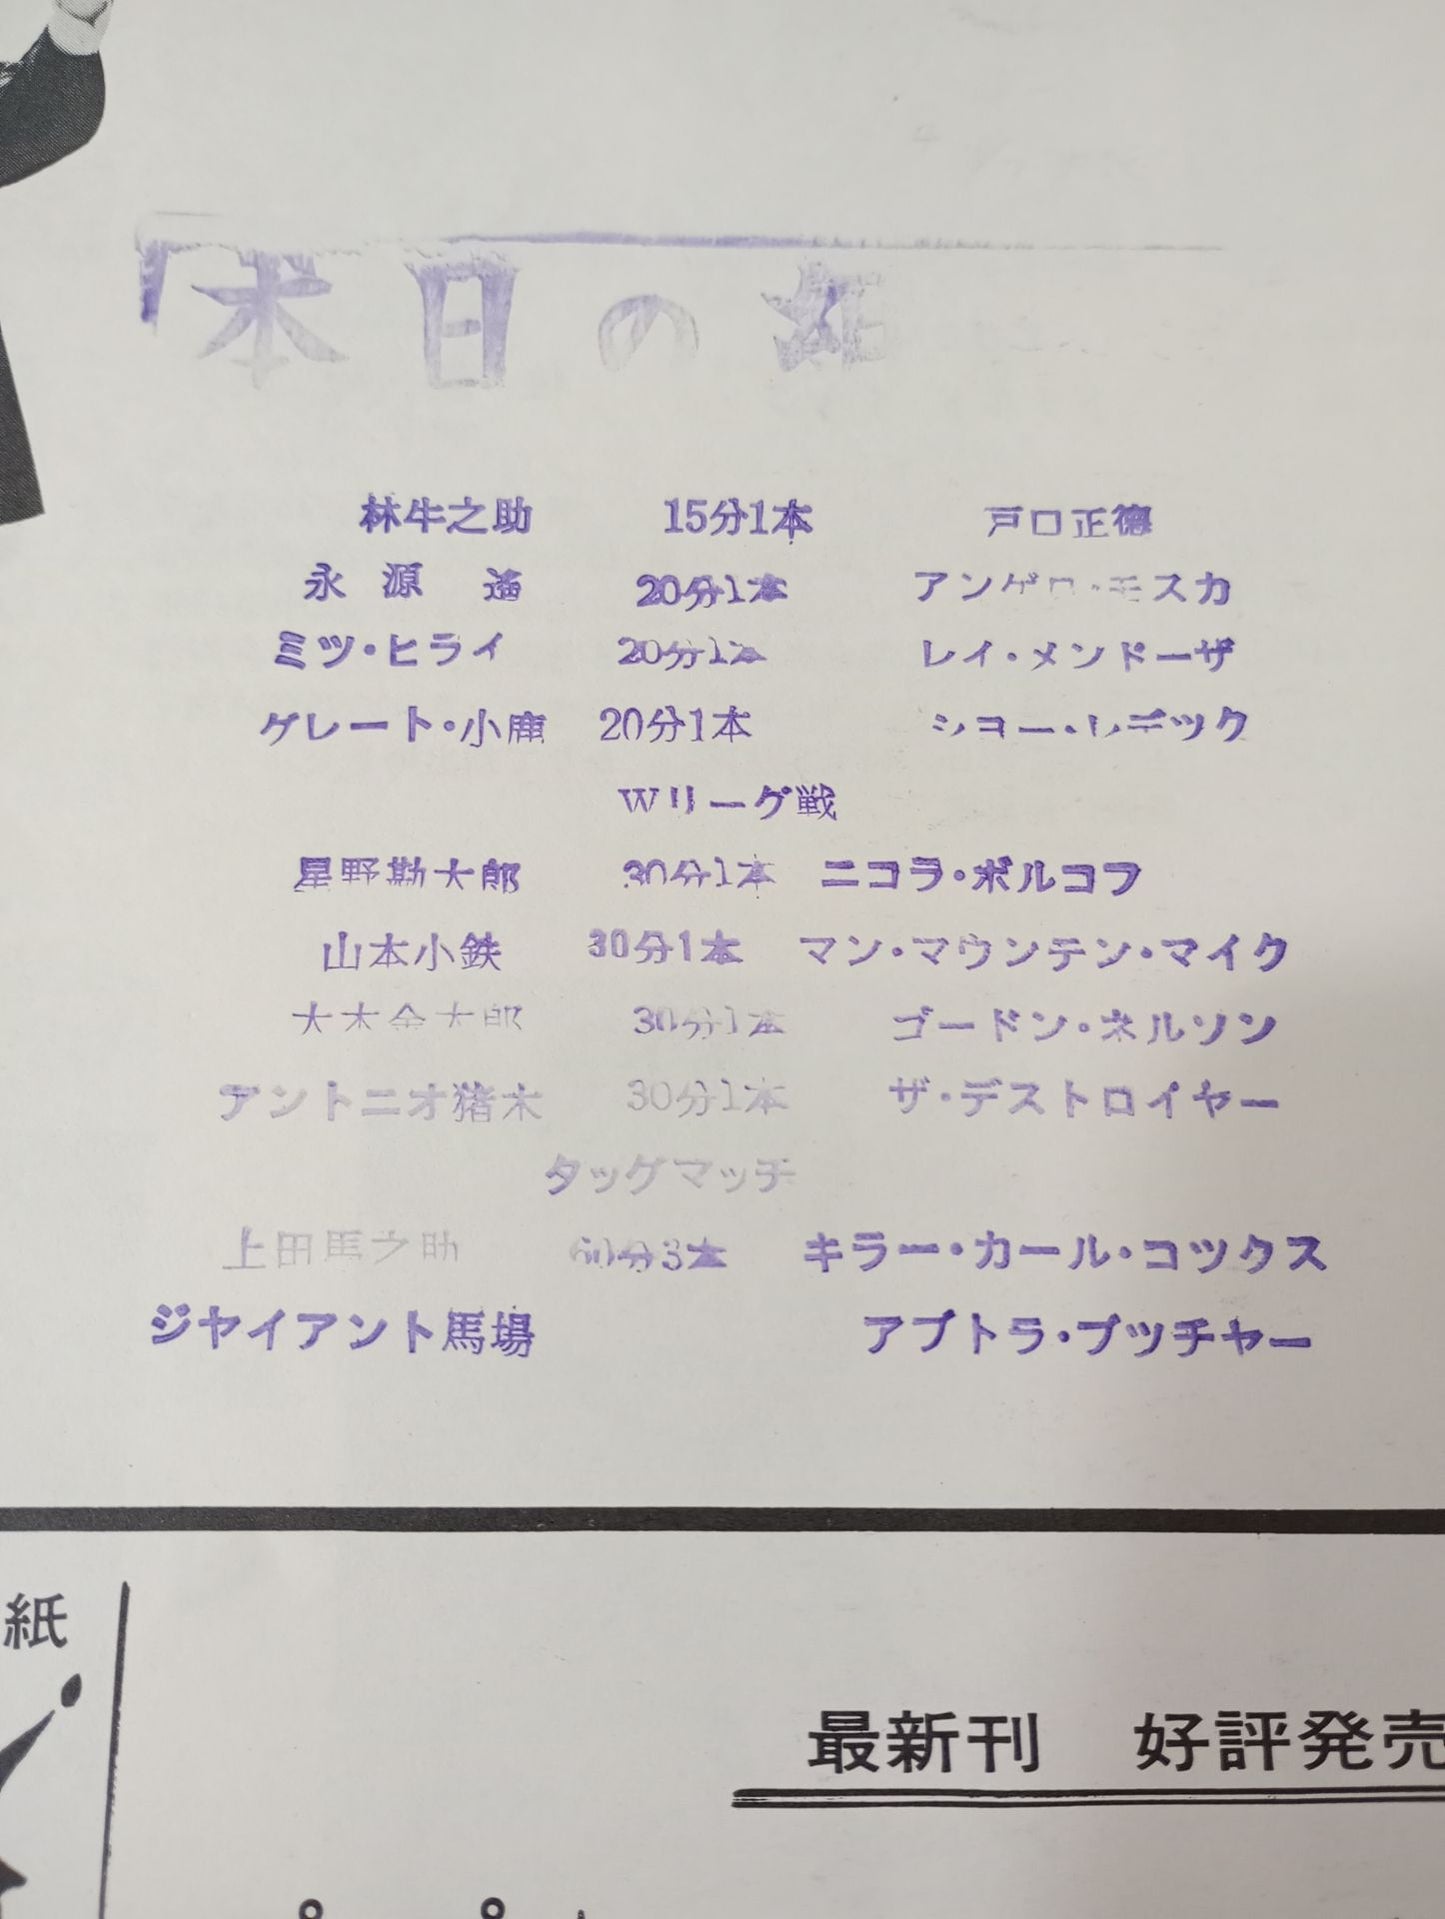 「本日の
林牛之助 15分1本 戸口正徳
永源 遙 20分1本 アンゲロ・モスカ
ミツ・ヒライ 20分1本 レイ・メンドーザ
グレート・小鹿 20分1本
Wリーグ戦
星野勘太郎 30分1本 ニコラ・ボルコフ
山本小鉄 30分1本 マン・マウンテン・マイク
大木金太郎 30分1本 ゴードン・ネルソン
アントニオ猪木 30分1本 ザ・デストロイヤー
タッグマッチ
上田馬之助 60分3本 キラー・カール・コツクス
ジヤイアント馬場 アブトラ・ブツチヤー
紙
最新刊 好評発売